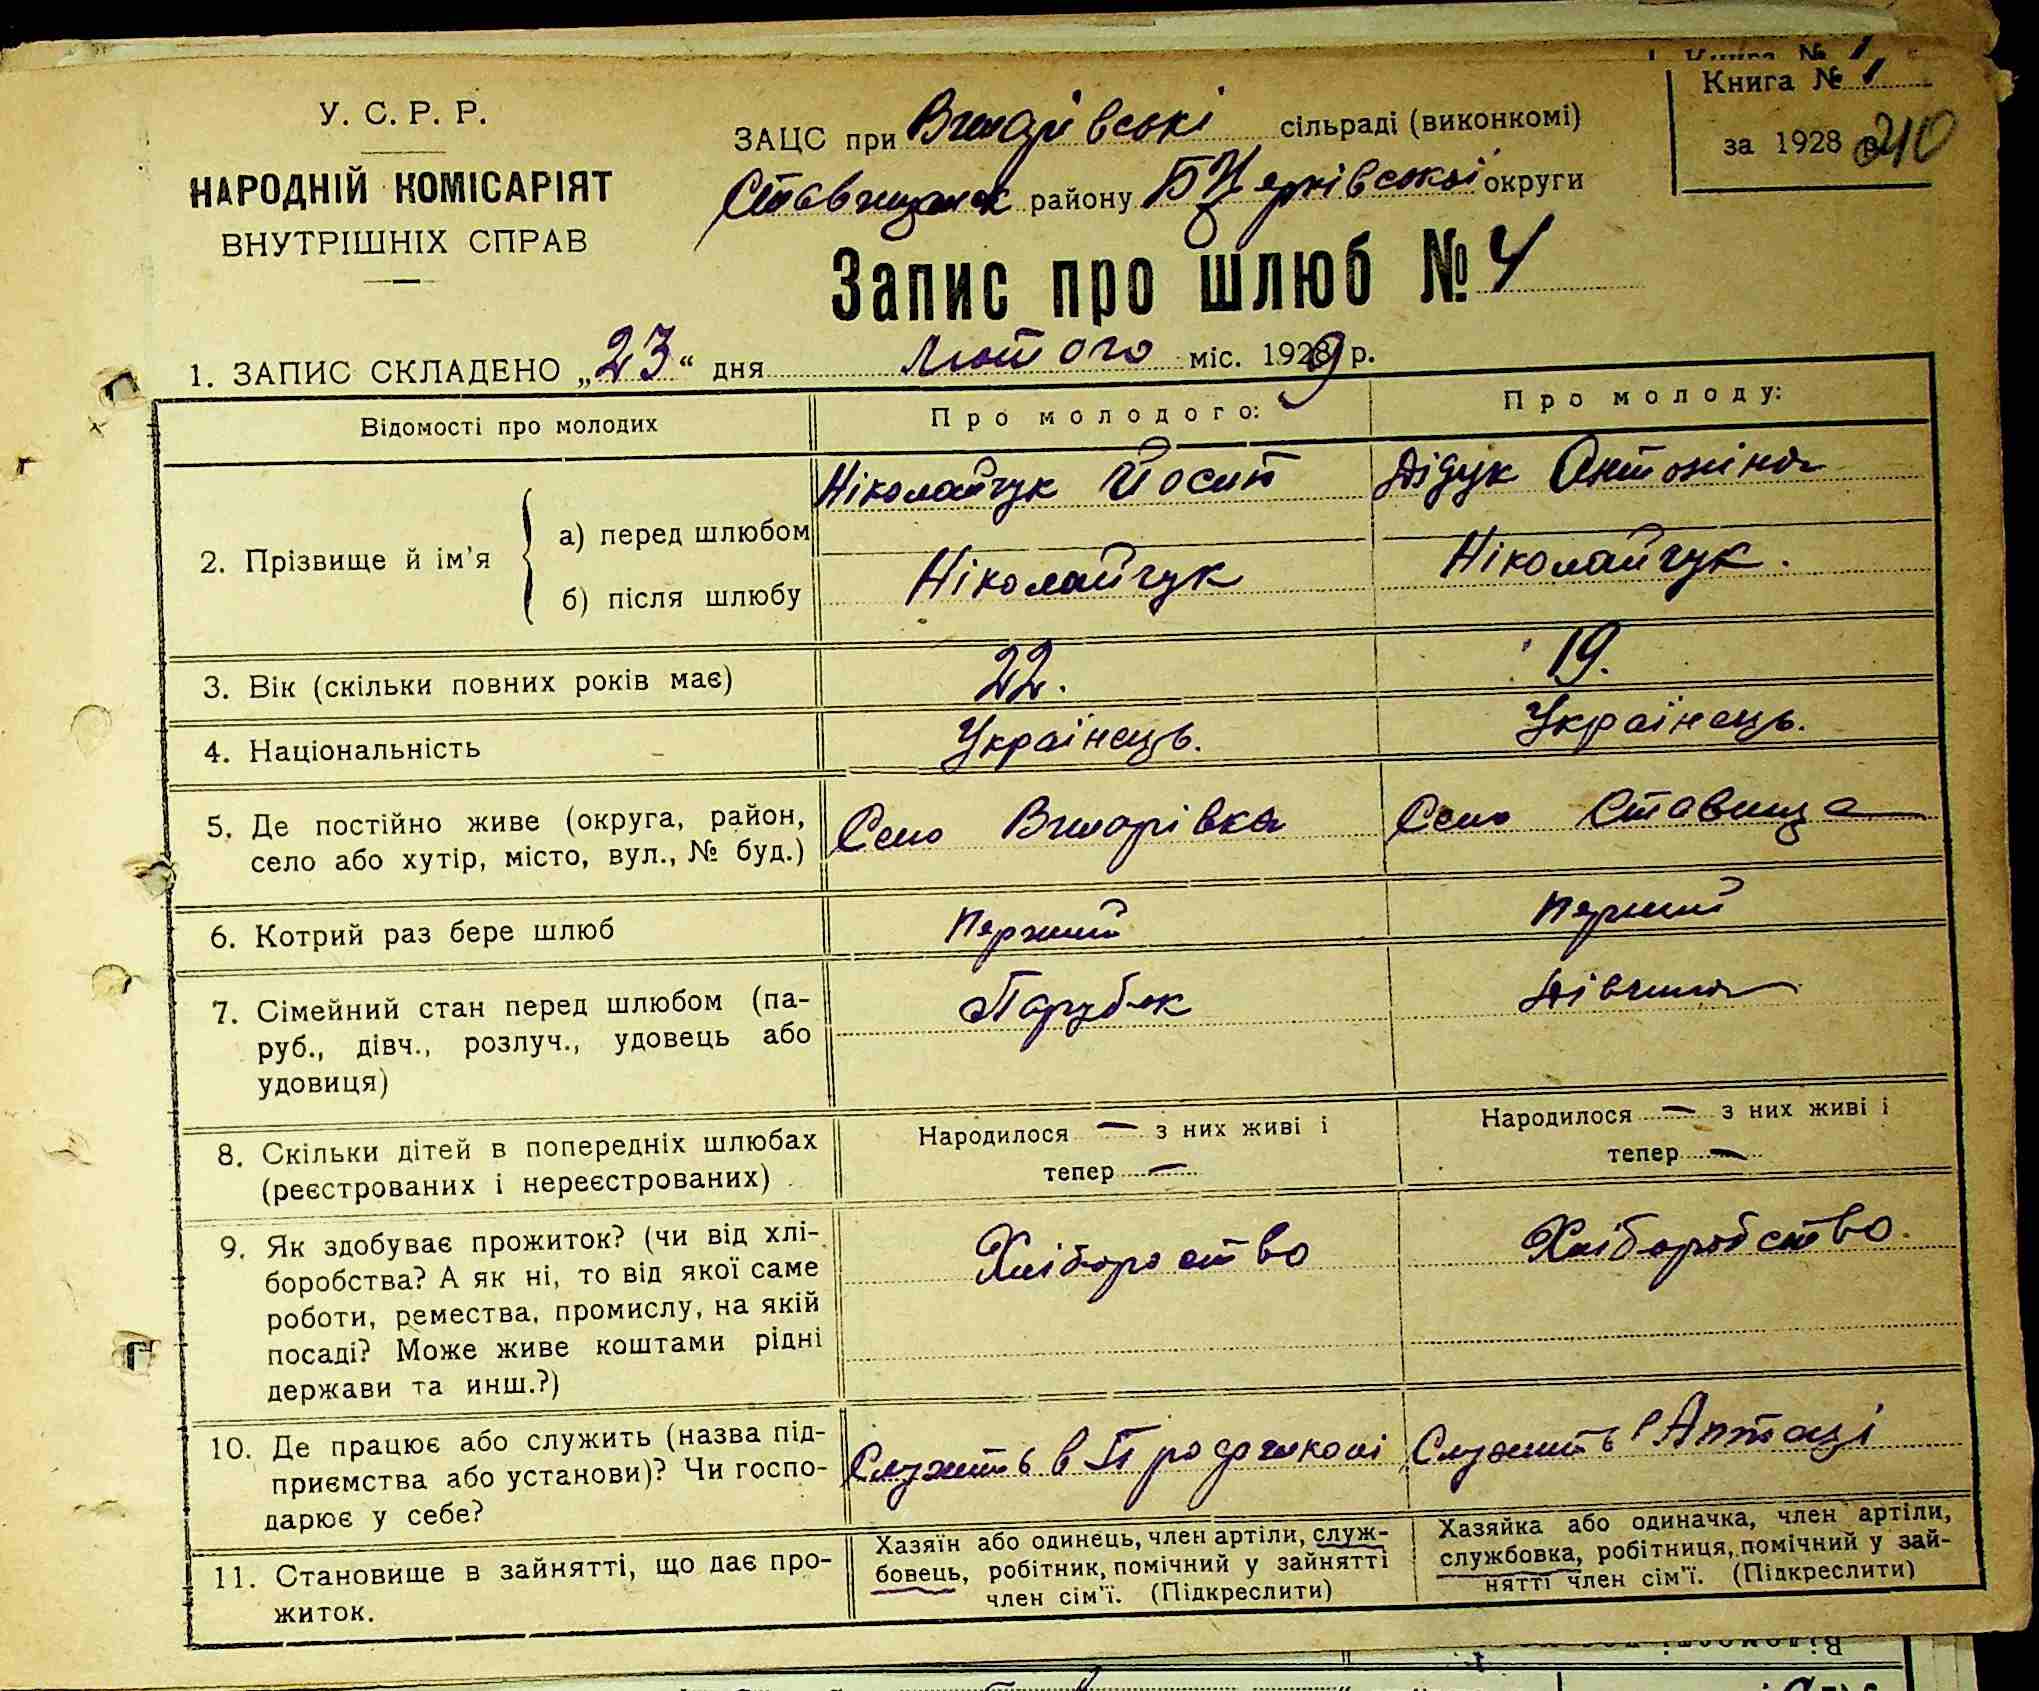 Книга № 1
У. С. Р. Р.
НАРОДНІЙ КОМІСАРІЯТ
ВНУТРІШНІХ СПРАВ
ЗАЦС при сільраді (виконкомі)
району БЦерківської округи
Книга № 1
за 1928 р. 210
Запис про шлюб № 4
1. ЗАПИС СКЛАДЕНО „23“ дня лютого міс. 1929 р.
Відомості про молодих
Про молодого:
Про молоду:
2. Прізвище й ім'я
а) перед шлюбом
Ніколайчук Йосип
Дідук Антоніна
б) після шлюбу
Ніколайчук
Ніколайчук.
3. Вік (скільки повних років має)
22.
19.
4. Національність
Українець.
Українець.
5. Де постійно живе (округа, район,
село або хутір, місто, вул., № буд.)
Село
Село Ставища
6. Котрий раз бере шлюб
Перший
Перший
7. Сімейний стан перед шлюбом (па-
руб., дівч., розлуч., удовець або
удовиця)
Парубок
Дівчина
8. Скільки дітей в попередніх шлюбах
(реєстрованих і нереєстрованих)
Народилося — з них живі і
тепер —
Народилося — з них живі і
тепер —
9. Як здобуває прожиток? (чи від хлі-
боробства? А як ні, то від якої саме
роботи, ремества, промислу, на якій
посаді? Може живе коштами рідні
держави та инш.?)
Хлібороство
Хліборобство.
10. Де працює або служить (назва під-
приємства або установи)? Чи госпо-
дарює у себе?
Служить в
Служить Аптеці
11. Становище в зайнятті, що дає про-
житок.
Хазяїн або одинець, член артіли, служ-
бовець, робітник, помічний у зайнятті
член сім'ї. (Підкреслити)
Хазяйка або одиначка, член артіли,
службовка, робітниця, помічний у зай-
нятті член сім'ї. (Підкреслити)